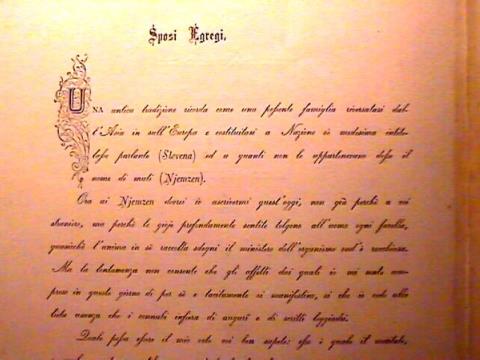 Sposi Egregi,
USA antica tradizione ricorda come una possente famiglia riversatasi dal-
l'Asia in sull'Europa e costituitasi a Nazione sè medesima intito-
lasse parlante (Slovena) ed a quanti non le appartenevano desse il
nome di muti (Njemzen).
Ora ai Njemzen dovrei io ascrivermi quest'oggi, non già perchè a voi
straniero, ma perchè le gioje profondamente sentite tolgono all'uomo ogni favella,
quasichè l'anima in sè raccolta sdegni il ministero dell'organismo ond'è racchiusa.
Ma la costumanza non consente che gli affetti dai quali io vi muto com-
preso in questo giorno di per sè e tacitamente si manifestino, sì che io cedo alla
lieta usanza che i connubi infiora di augurî e di scritti leggiadri.
Quale possa essere il mio voto voi ben sapete: esso è quale il